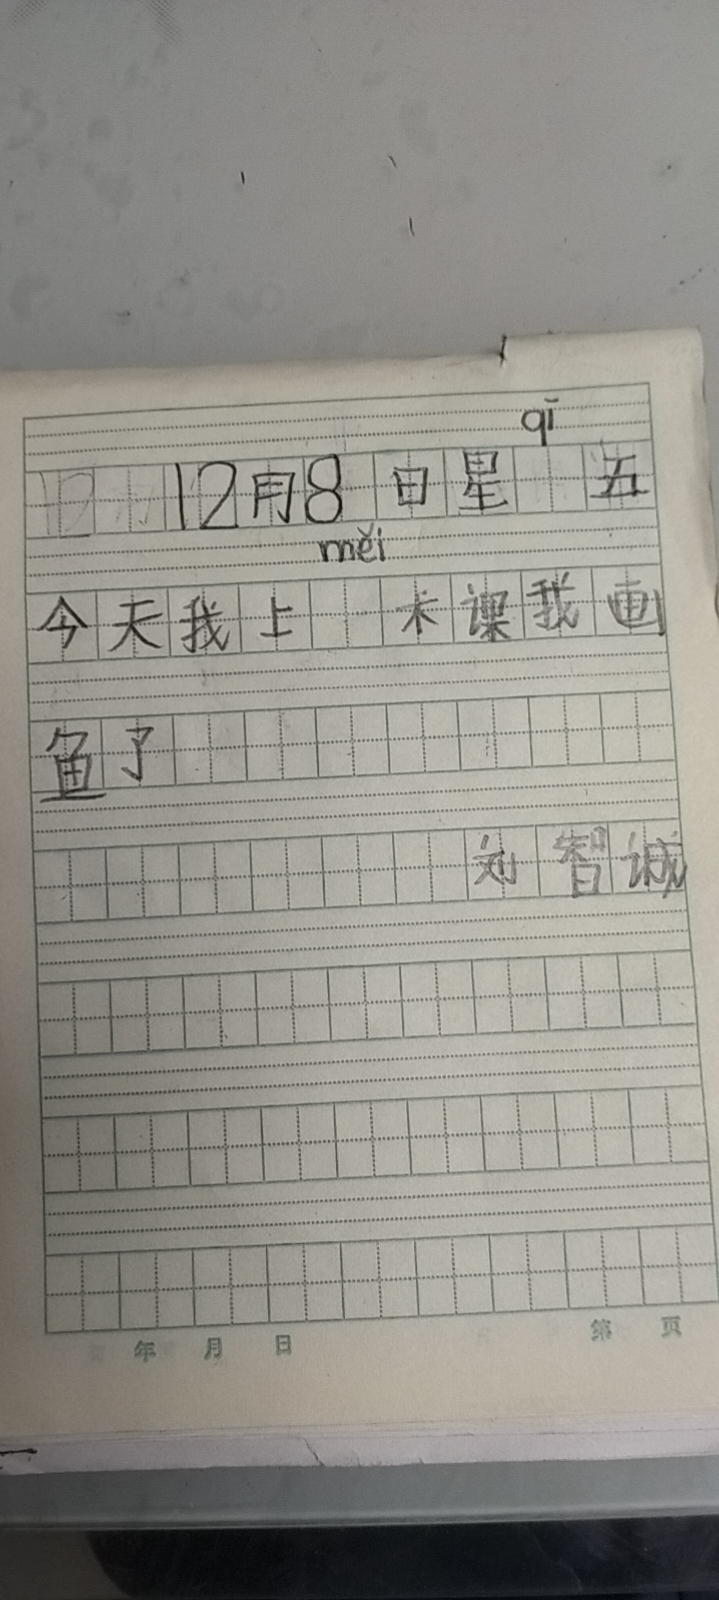 qī
12月8日星 五
měi
今天我上 术课我画
鱼了
刘智诚
年 月 日 第 页